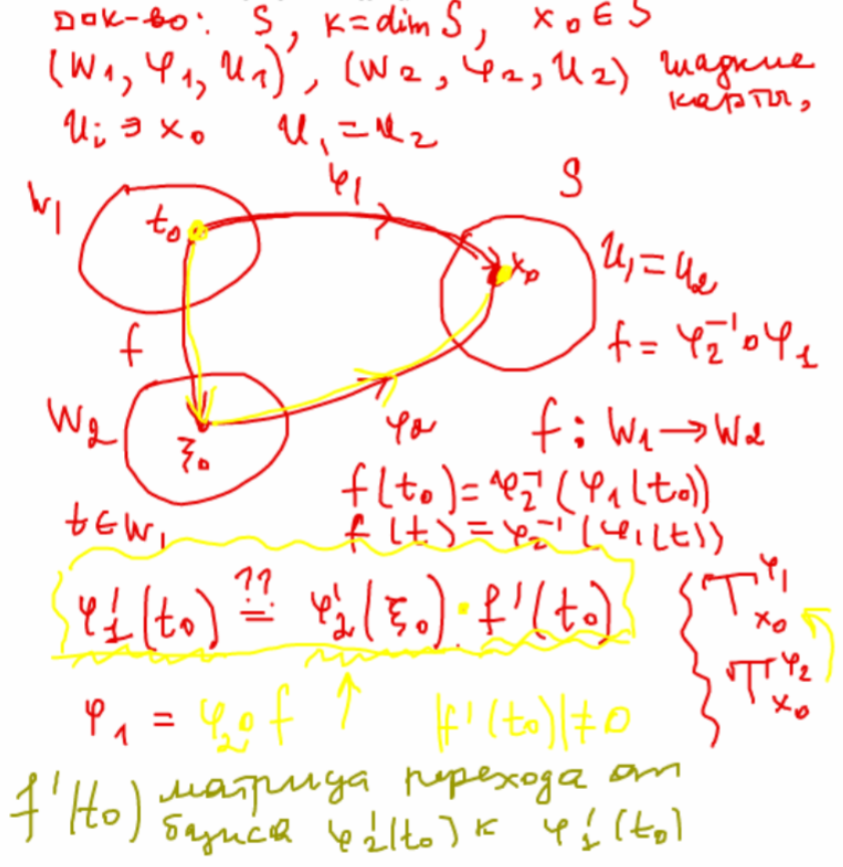 док-во: S, k=dim S, x₀ ∈ S
(W₁, φ₁, U₁), (W₂, φ₂, U₂) гладкие
карты,
Uᵢ ∋ x₀ U₁ = U₂
W₁ t₀ φ₁ S
x₀ U₁ = U₂
f f = φ₂⁻¹∘φ₁
W₂ ξ₀ φ₂ f : W₁ → W₂
f(t₀) = φ₂⁻¹(φ₁(t₀))
t ∈ W₁ f(t) = φ₂⁻¹(φ₁(t))
φ₁'(t₀) ≟?? φ₂'(ξ₀) · f'(t₀)
T_{x₀}^{φ₁}
T_{x₀}^{φ₂}
φ₁ = φ₂∘f |f'(t₀)| ≠ 0
f'(t₀) матрица перехода от
базиса φ₂'(t₀) к φ₁'(t₀)